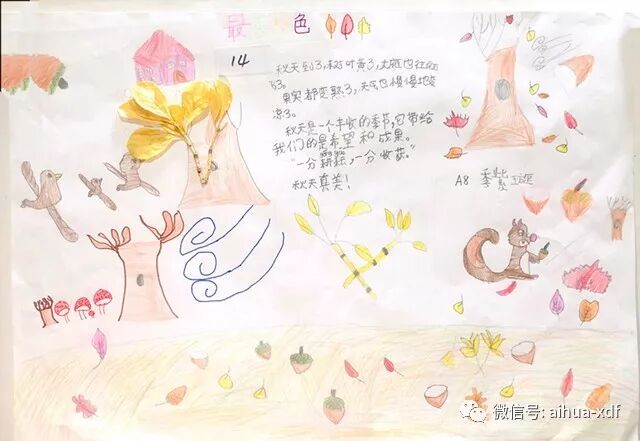 最 色
14
秋天到了,树叶黄了,大雁也往南
飞了。
果实都变熟了,天气也慢慢地变
凉了。
秋天是一个丰收的季节,它带给
我们的是希望和成果。
“一分耕耘,一分收获。”
秋天真美!
A8 季
微信号: aihua-xdf